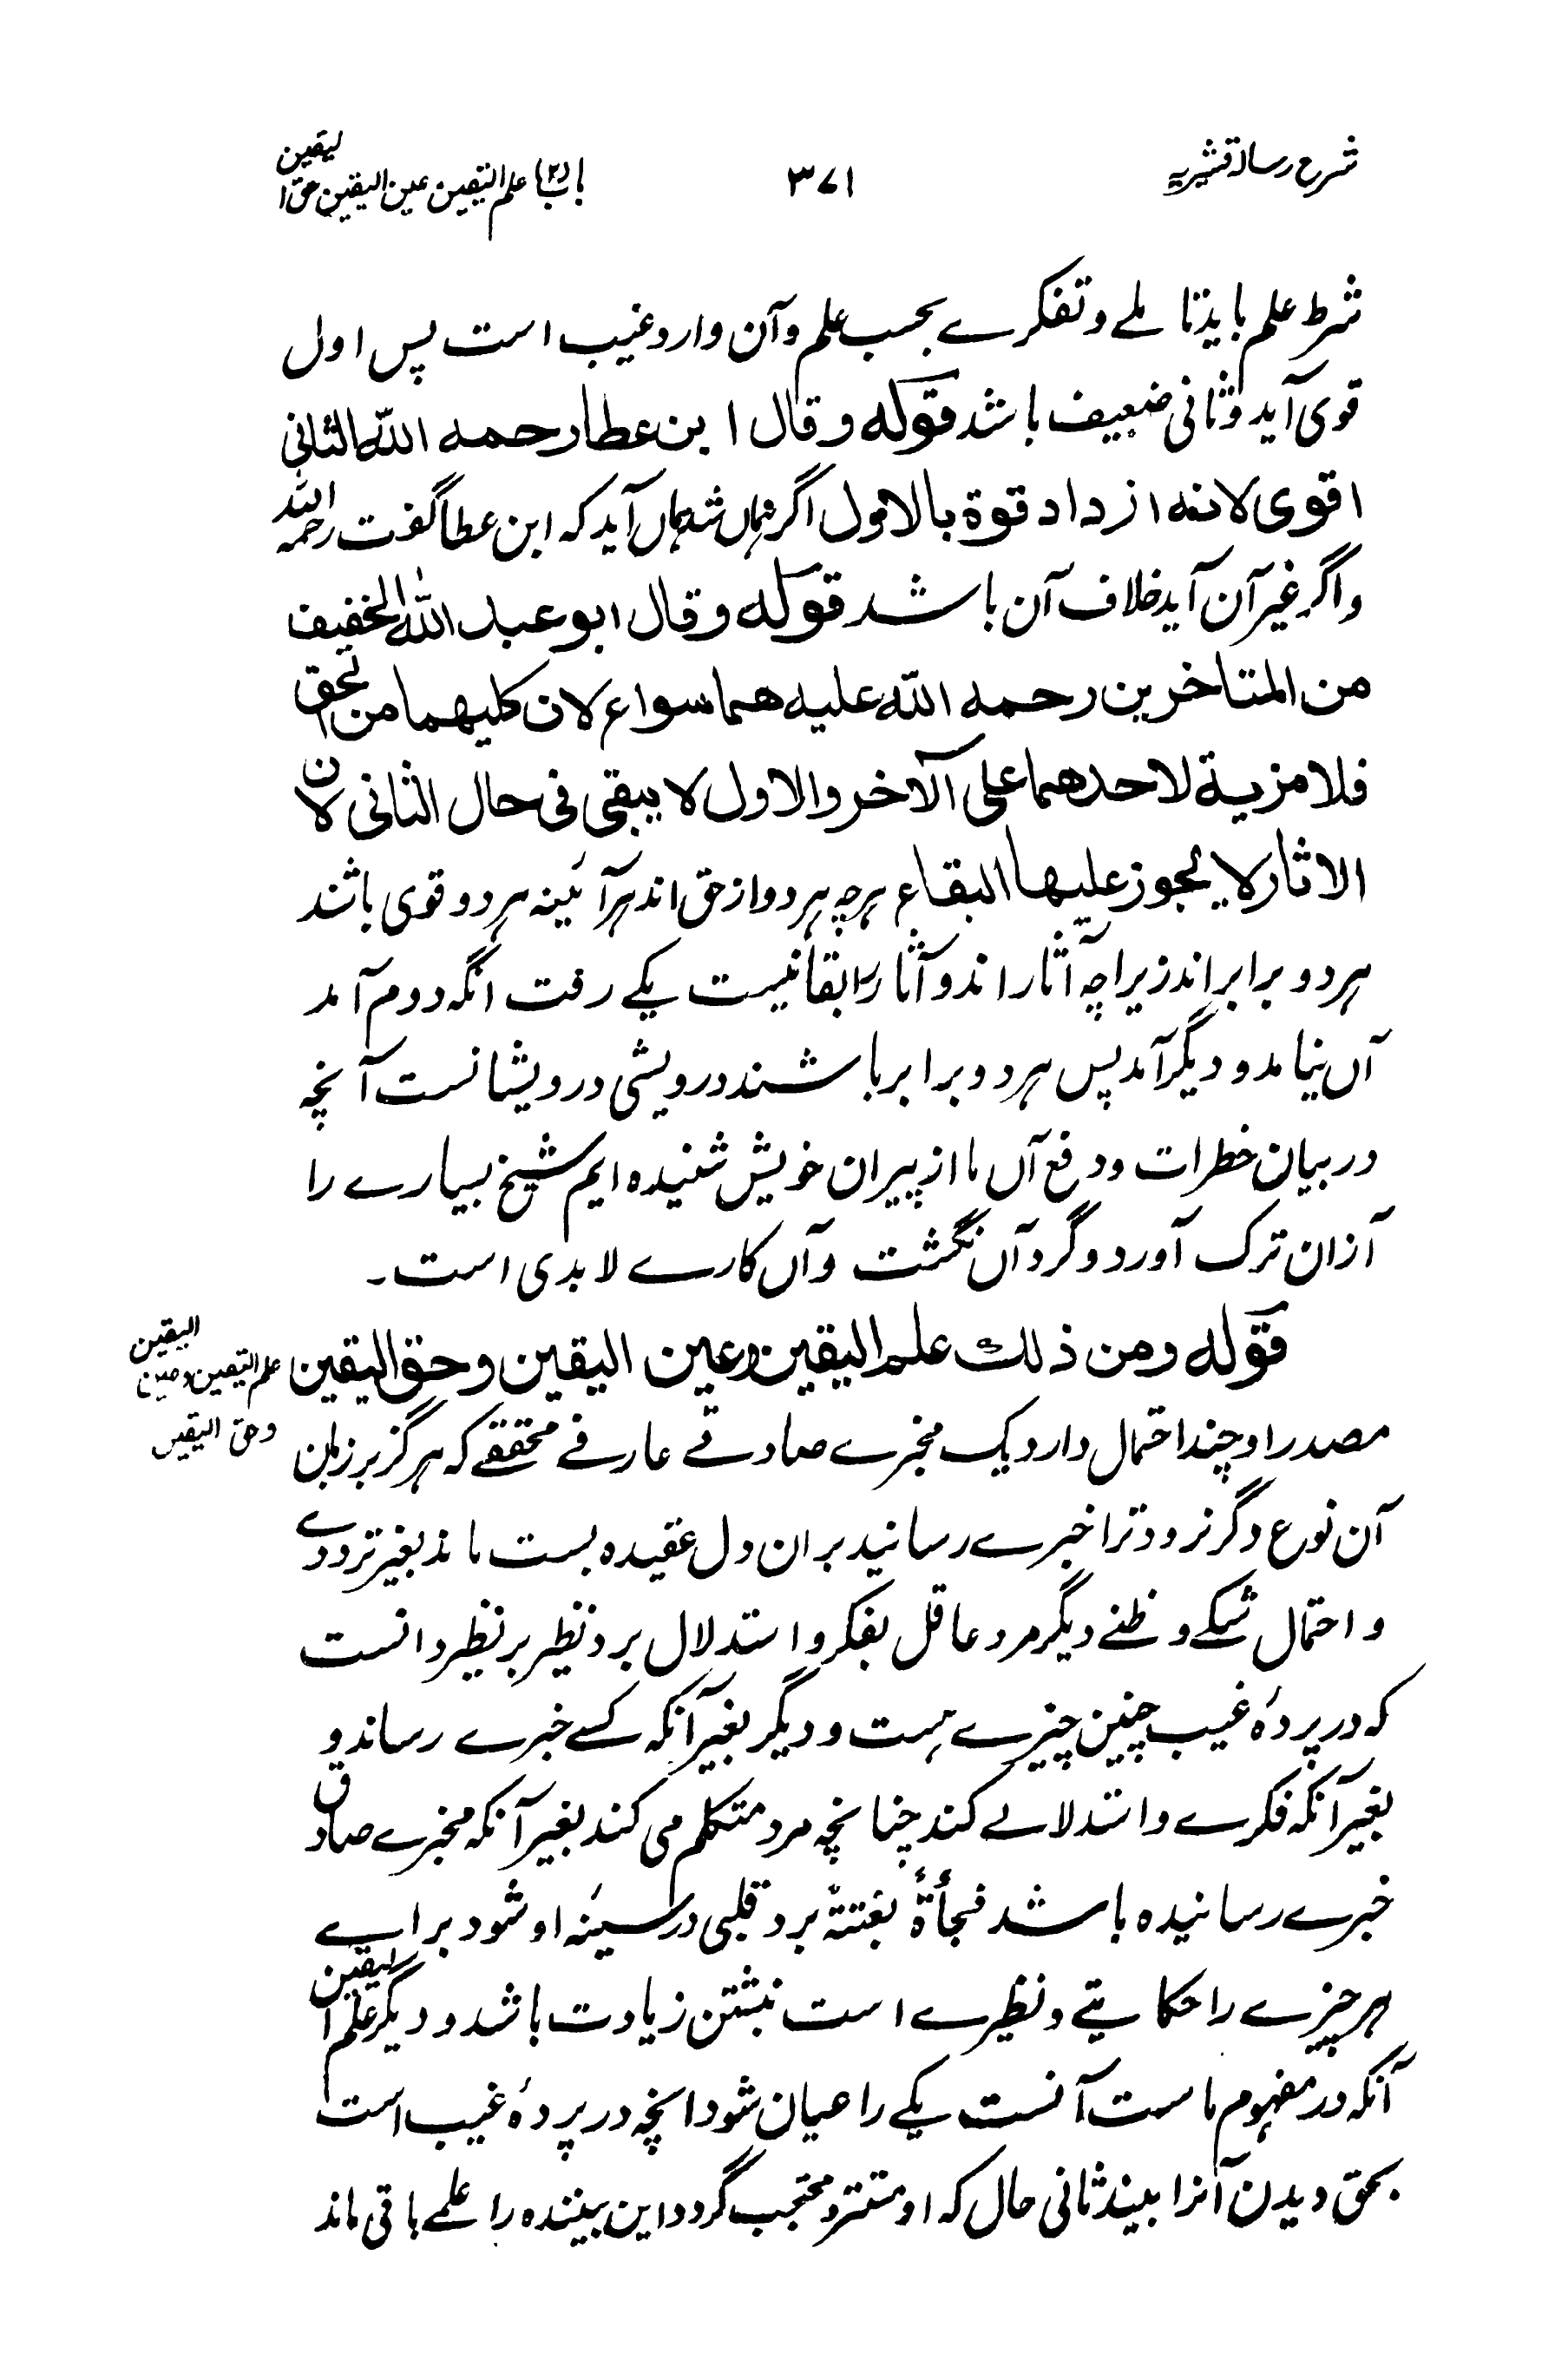 شرح رسالۂ قشیریه
۳۷۱
باب (۲) علم الیقین عین الیقین حق الیقین
شرط علم باید تاملے و تفکرے بحسب علم وآن وارد غیب است پس اول
قوی آید و ثانی ضعیف باشد قوله وقال ابن عطا رحمه الله الثانی
اقوی لانه ازداد قوة بالاول اگر ہماں شد ہماں آید که ابن عطا گفت رحمه الله
و اگر غیر آن آید خلاف آن باشد قوله وقال ابو عبد الله الخفیف
من المتاخرین رحمه الله علیه هما سواء لان کلیهما من الحق
فلا مزیة لاحدهما علی الآخر والاول لا یبقی فی حال الثانی لان
الاثار لا یجوز علیها البقاء ہرچہ ہردو از حق اند ہرآئینہ ہردو قوی باشند
ہردو برابر اند زیراچہ آثار اند و آثار را بقا نیست یکے رفت انگہ دوم آمد
آں نیامد و دیگر آمد پس ہردو برابر باشند درویشی درویشانست آنچہ
در بیان خطرات و دفع آں ما از پیران خویش شنیده ایم شیخ بسیارے را
ازان ترک آورد و گرد آں نگشت وآں کارے لابدی است۔
قوله ومن ذلك علم الیقین وعین الیقین وحق الیقین
علم الیقین و عین الیقین
و حق الیقین
مصدر او چند احتمال دارد یک مخبرے صادقے عارفے محققے کہ ہرگز بر زبان
آن نوع دگر نرود ترا خبرے رسانید بران دل عقیده بست ماند بغیر ترددے
و احتمال شکے و ظنے دیگر مرد عاقل بفکر و استدلال برد نظیر بر نظیر دانست
کہ در پردۂ غیب چنین چیزے ہست و دیگر بغیر آنکہ کسے خبرے رساند و
بغیر آنکہ فکرے و استدلالے کند چنانچہ مرد متکلم می کند بغیر آنکہ مخبرے صادق
خبرے رسانیده باشد فجأةً بغتتہً برد قلبی در سینۂ او شود براے
ہرچیزے را حکایتے و نظیرے است نبشتن زیادت باشد و دیگر علم الیقین
آنکہ در مفہوم ماست آنست یکے را عیان شود انچہ در پردۂ غیب است
بحق دیدن آنرا بیند ثانی حال کہ او مستتر و محتجب گردد این بیننده را علمے باقی ماند